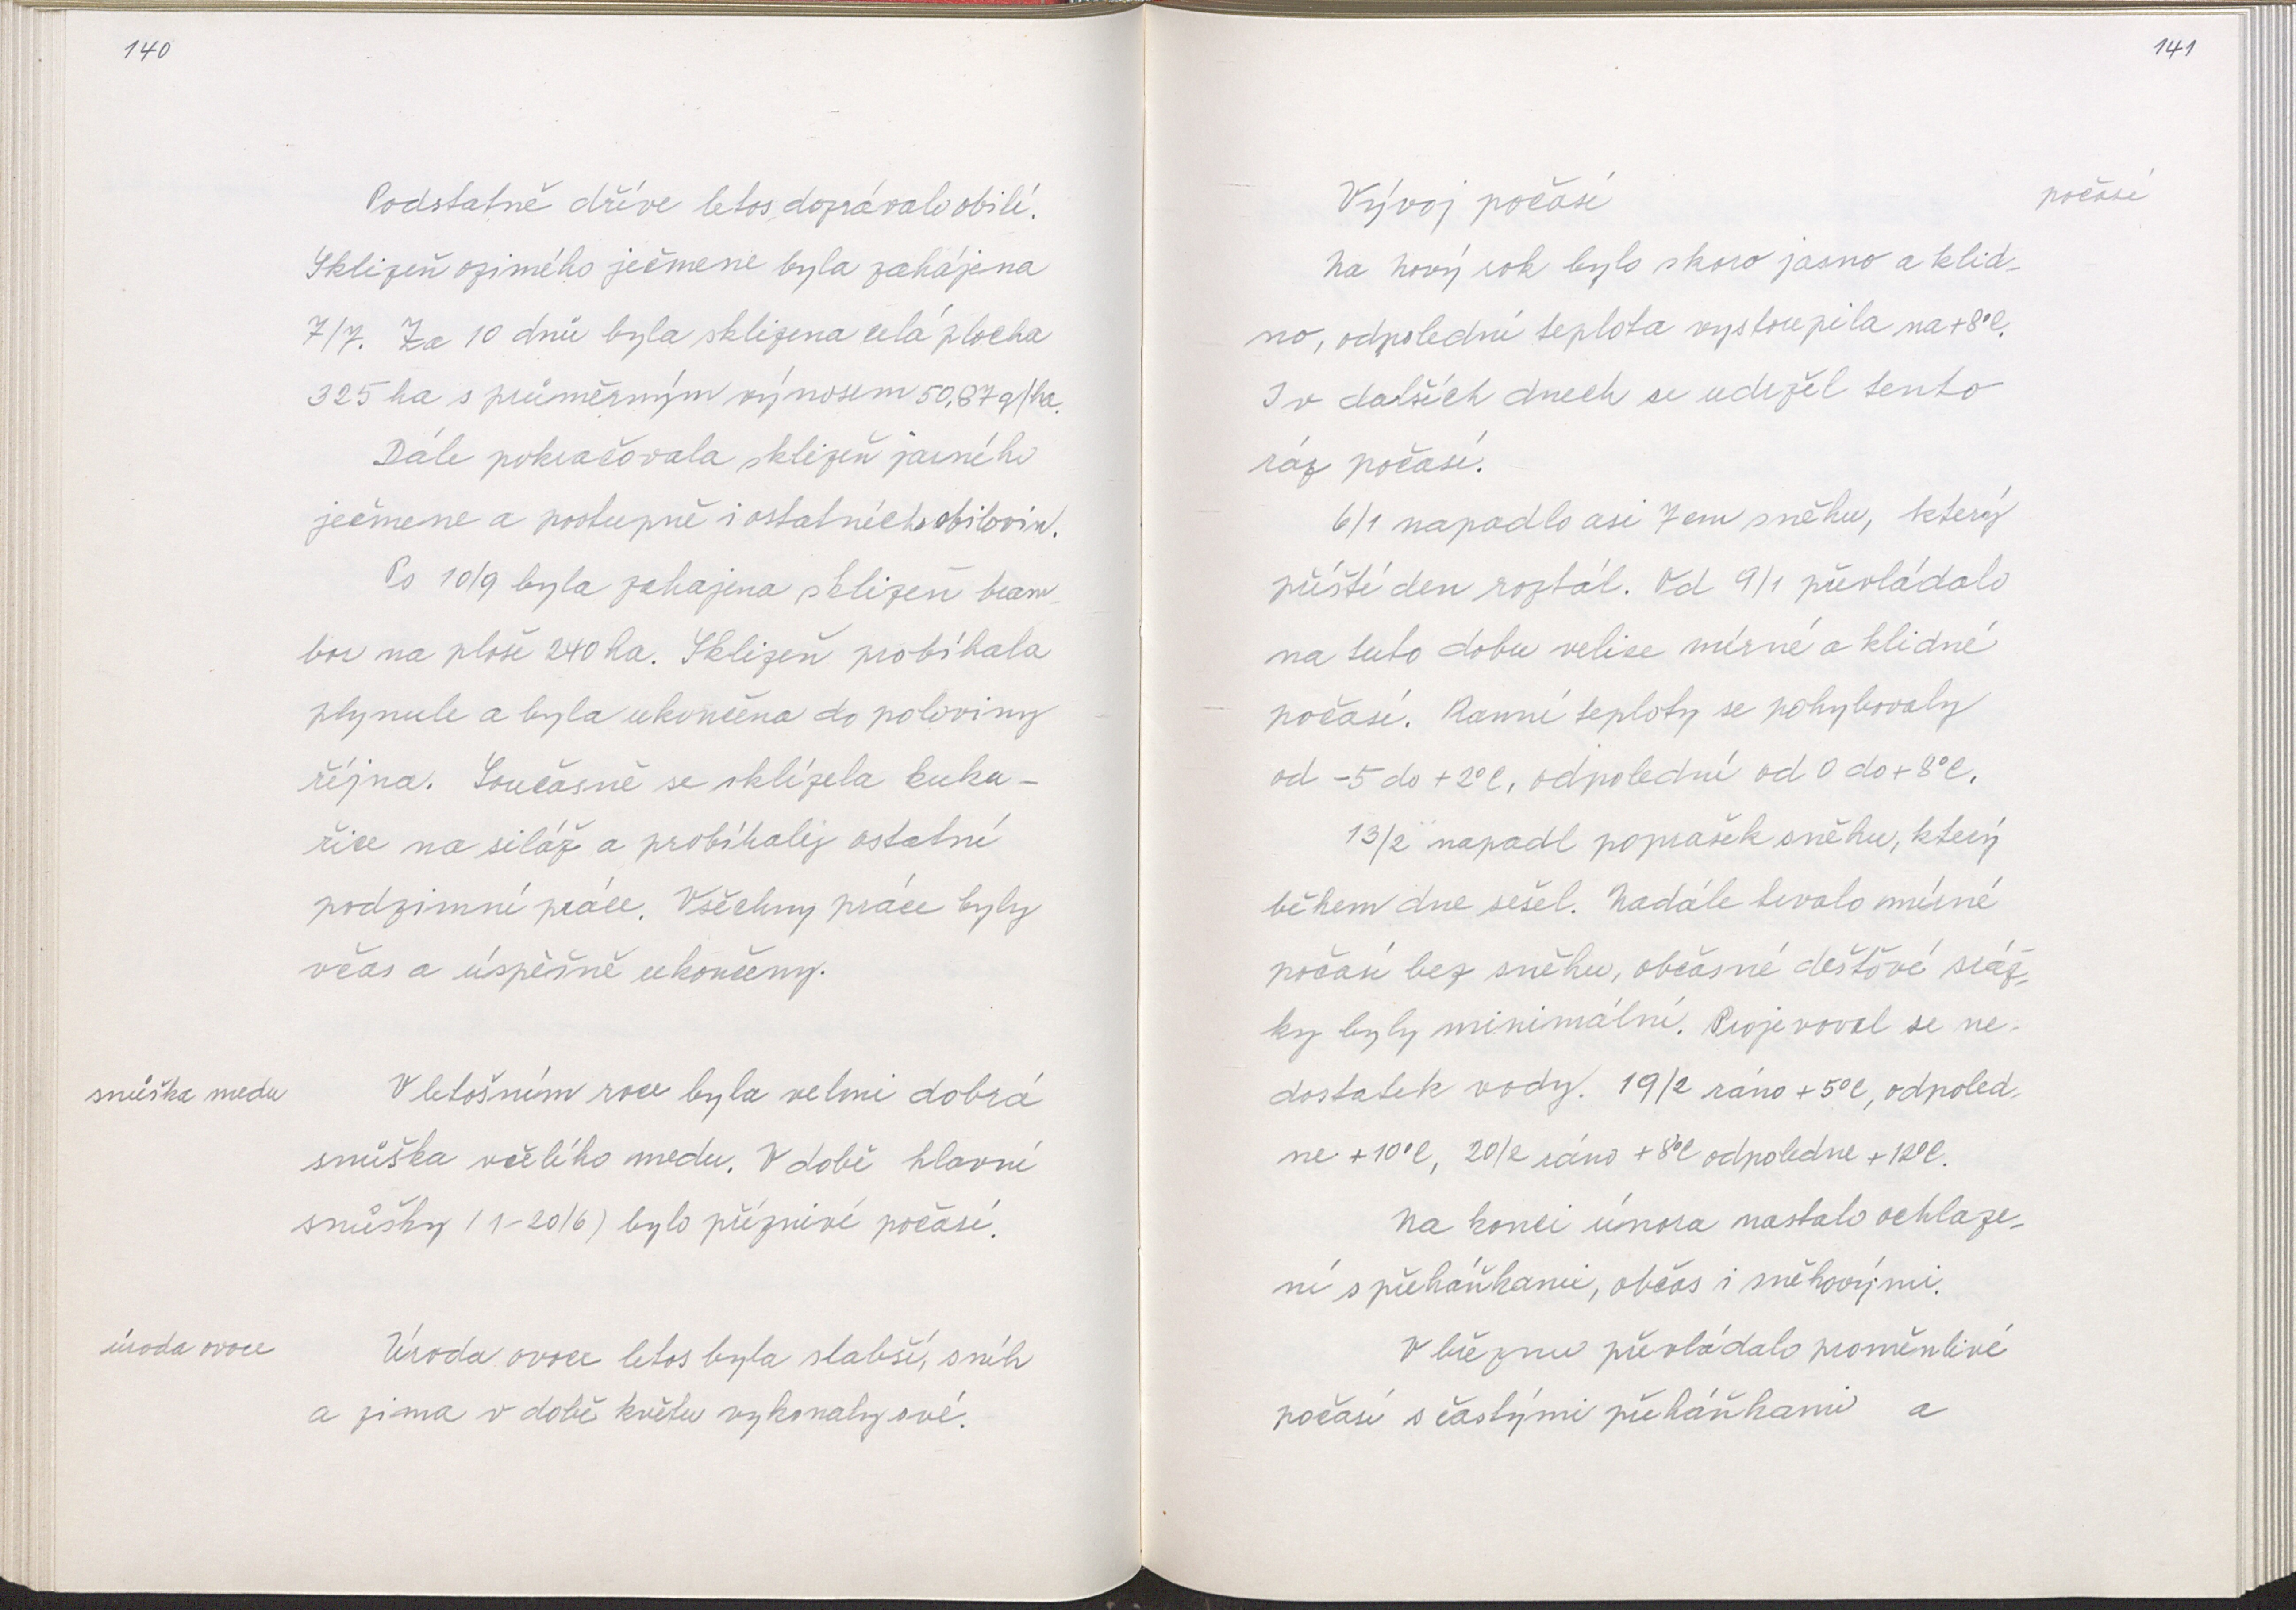 140
Podstatně dříve letos doprávalo obilí.
Sklizeň ozimého ječmene byla zahájena
7/7. Za 10 dnů byla sklizena celá plocha
325 ha s průměrným výnosem 50,87 q/ha.
Dále pokračovala sklizeň jarného
ječmene a postupně i ostatních obilovin.
Po 10/9 byla zahajena sklizeň bram-
bor na ploše 240 ha. Sklizeň probíhala
plynule a byla ukončena do poloviny
října. Současně se sklízela kuku-
řice na siláž a probíhaly ostatní
podzimní práce. Všechny práce byly
včas a úspěšně ukončeny.
snůška medu
V letošním roce byla velmi dobrá
snůška včelího medu. V době hlavní
snůšky (1-20/6) bylo příznivé počasí.
úroda ovoce
Úroda ovoce letos byla slabší, sníh
a zima v době květu vykonaly své.
141
počasí
Vývoj počasí
Na Nový rok bylo skoro jasno a klid-
no, odpolední teplota vystoupila na +8°C.
I v dalších dnech se udržel tento
ráz počasí.
6/1 napadlo asi 7 cm sněhu, který
příští den roztál. Od 9/1 převládalo
na tuto dobu velice mírné a klidné
počasí. Ranní teploty se pohybovaly
od -5 do +2°C, odpolední od 0 do +8°C.
13/2 napadl poprašek sněhu, který
během dne sešel. Nadále trvalo mírné
počasí bez sněhu, občasné dešťové sráž-
ky byly minimální. Projevoval se ne-
dostatek vody. 19/2 ráno +5°C, odpoled-
ne +10°C, 20/2 ráno +8°C odpoledne +12°C.
Na konci února nastalo ochlaze-
ní s přeháňkami, občas i sněhovými.
V březnu převládalo proměnlivé
počasí s častými přeháňkami a